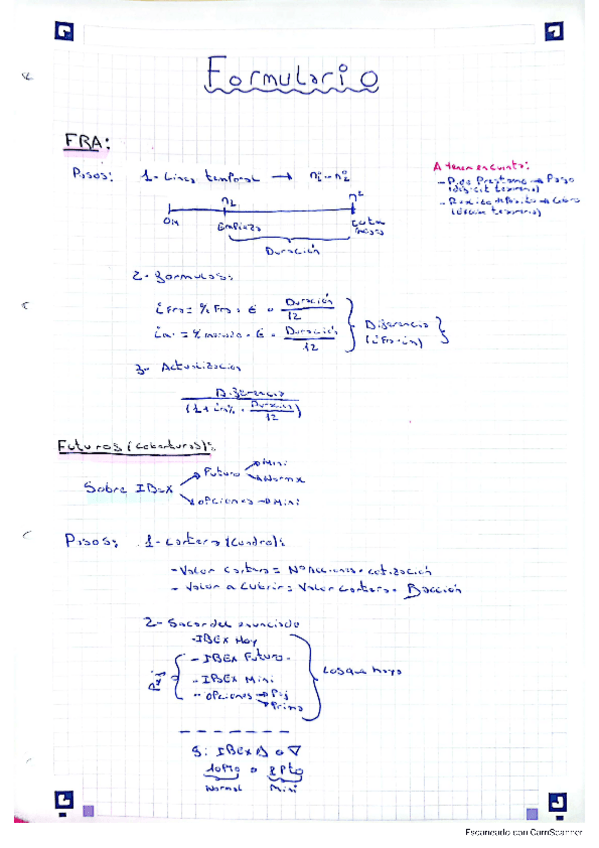 Formulario
FRA:
Pasos: 1- Linea temporal → nº - nº
A tener en cuenta:
- Pido Prestamo → Pago
n1 n2
0M Empieza
Duración
2- Formulas:
i Fra = % Fra · € · Duración / 12
im = % mercado · € · Duración / 12
Diferencia (iFra-im)
3- Actualizacion
Diferencia
(1 + im% · Duración / 12)
Futuros (coberturas):
Sobre IBEX → Futuro → Mini
→ Normal
→ Opciones → Mini
Pasos: 1- Cartera (Cuadro):
- Valor Cartera = Nº Acciones · cotización
- Valor a Cubrir = Valor Cartera · B acción
2- Sacar del enunciado
- IBEX Hoy
- IBEX Futuro
- IBEX Mini
- Opciones → Pej
→ Prima
Los que haya
S: IBEX Δ o ∇
10 Pto o 2 Pto
Normal Mini
Escaneado con CamScanner